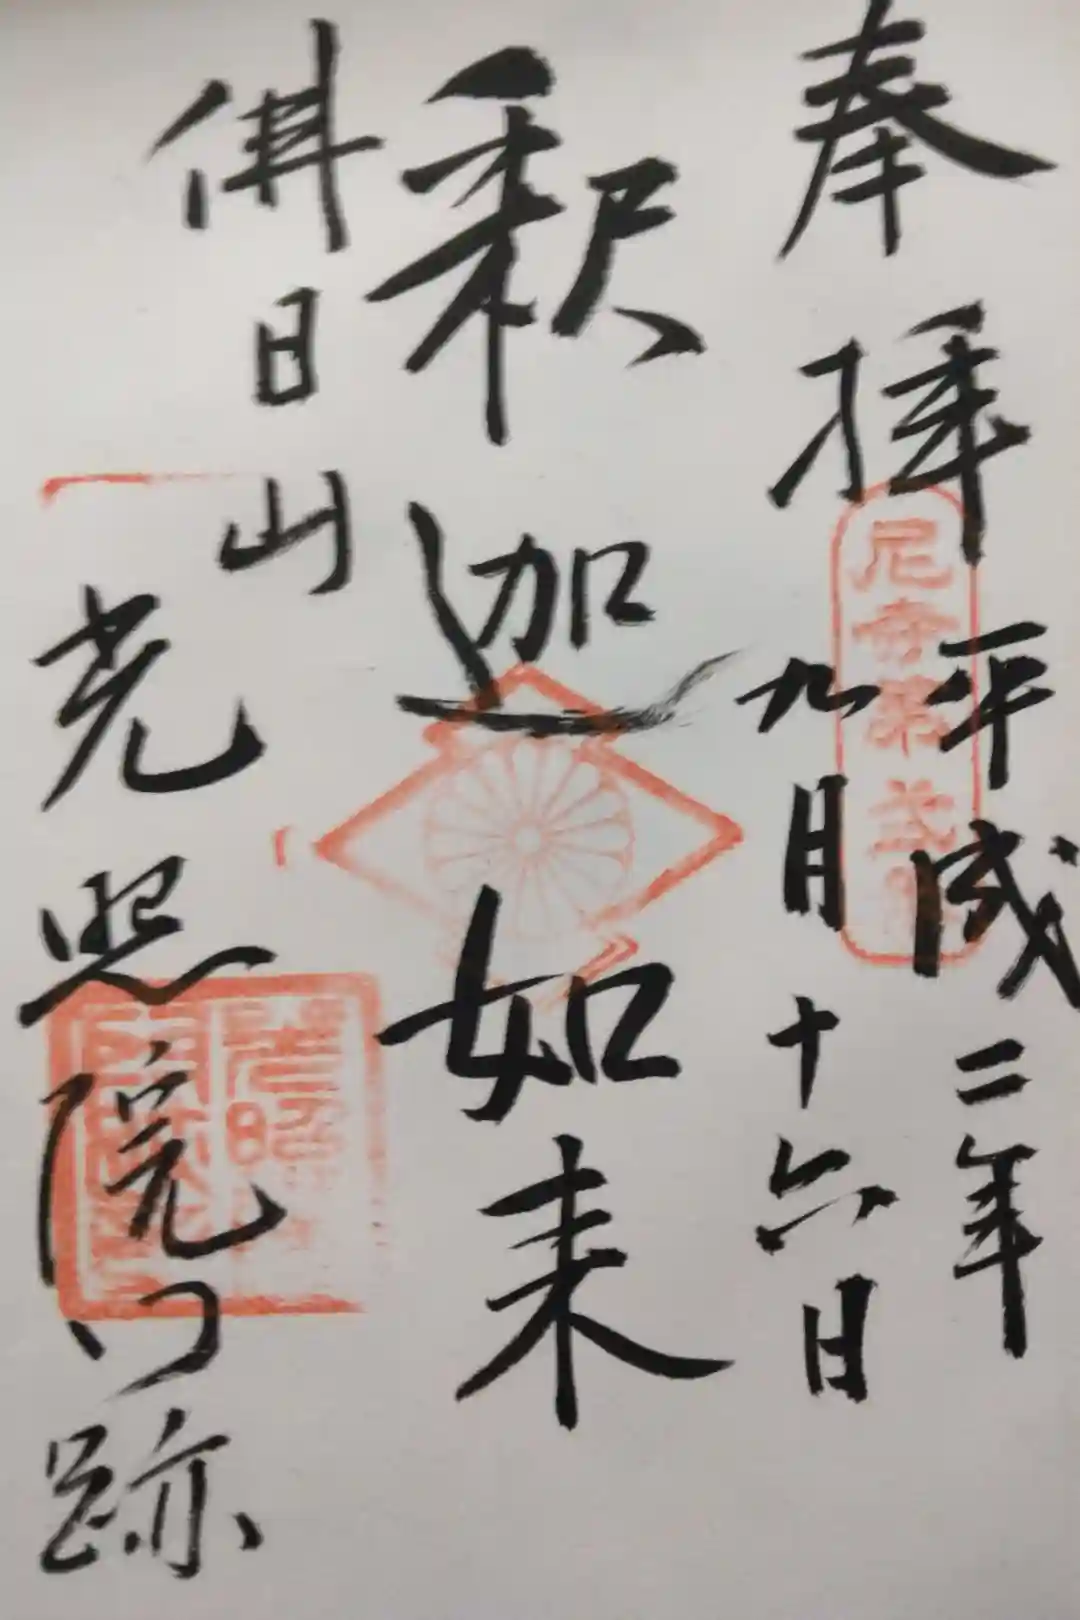 奉拝
平成二年
九月十六日
釈迦如来
佛日山
光照院門跡
尼寺第
光照